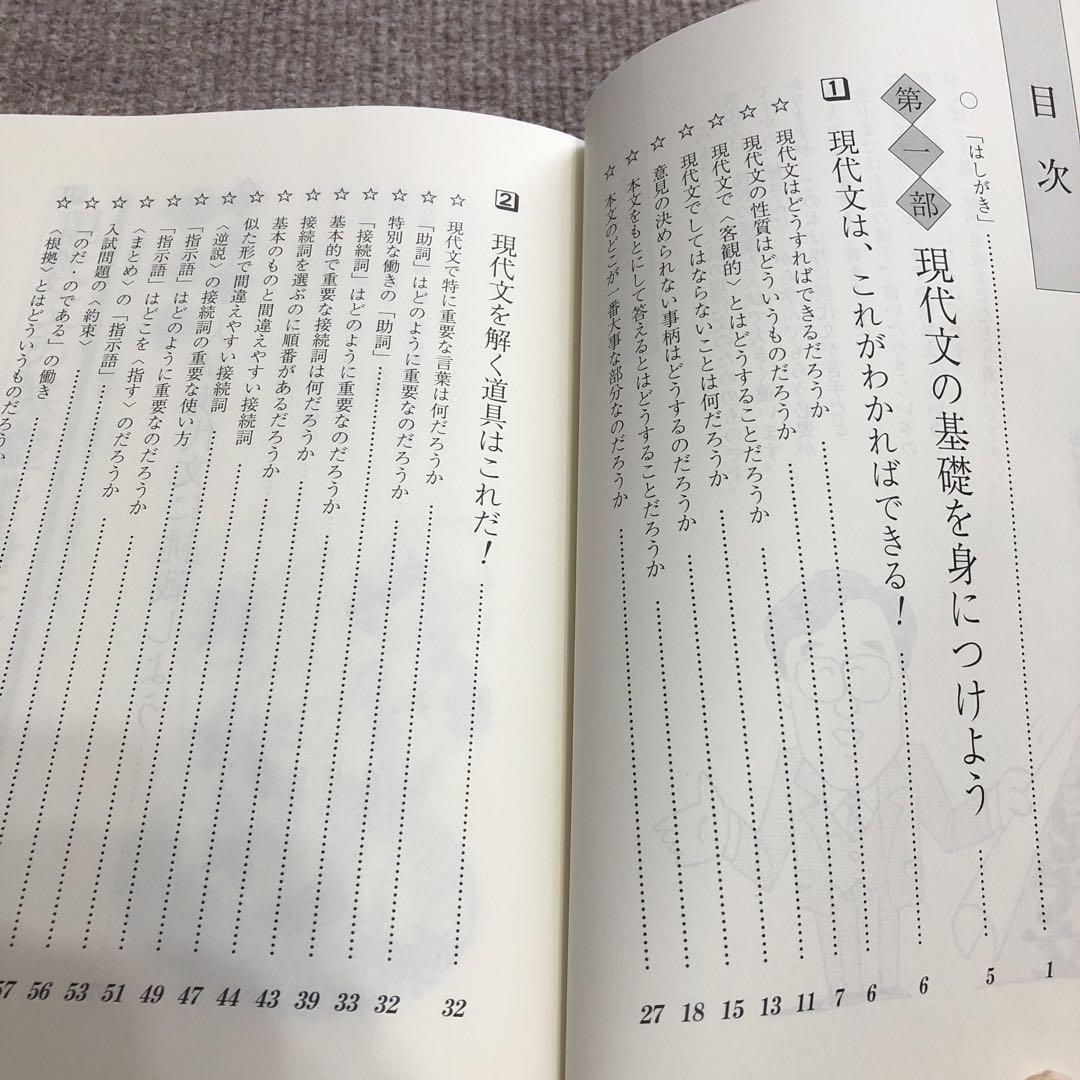 目次
○「はしがき」 1
第一部 現代文の基礎を身につけよう 5
1 現代文は、これがわかればできる！ 6
☆ 現代文はどうすればできるだろうか 6
☆ 現代文の性質はどういうものだろうか 7
☆ 現代文で〈客観的〉とはどうすることだろうか 11
☆ 現代文でしてはならないことは何だろうか 13
☆ 意見の決められない事柄はどうするのだろうか 15
☆ 本文をもとにして答えるとはどうすることだろうか 18
☆ 本文のどこが一番大事な部分なのだろうか 27
2 現代文を解く道具はこれだ！ 32
☆ 現代文で特に重要な言葉は何だろうか 32
☆ 「助詞」はどのように重要なのだろうか 33
☆ 特別な働きの「助詞」 39
☆ 「接続詞」はどのように重要なのだろうか 43
☆ 基本的で重要な接続詞は何だろうか 44
☆ 接続詞を選ぶのに順番があるだろうか 47
☆ 基本のものと間違えやすい接続詞 49
☆ 似た形で間違えやすい接続詞 51
☆ 〈逆説〉の接続詞の重要な使い方 53
☆ 「指示語」はどのように重要なのだろうか 56
☆ 「指示語」はどこを〈指す〉のだろうか 57
☆ 〈まとめ〉の「指示語」
☆ 入試問題の〈約束〉
☆ 「のだ・のである」の働き
☆ 〈根拠〉とはどういうものだろうか